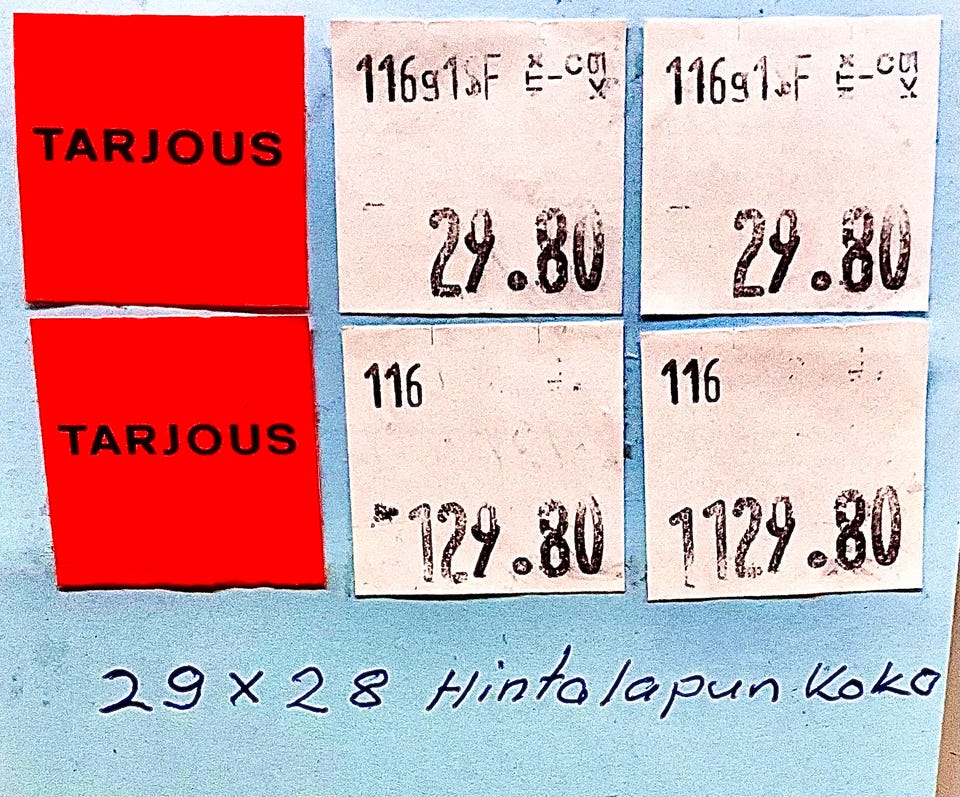 TARJOUS
116g1SF
29.80
116g1
29.80
TARJOUS
116
129.80
116
1129.80
29 x 28 Hintalapun Koko